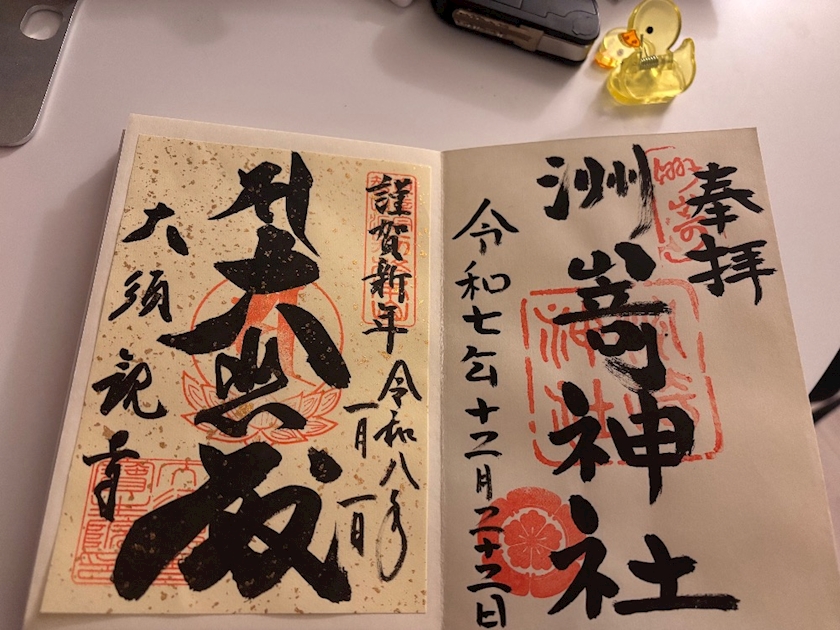 奉拝
洲嵜神社
令和七年十二月二十二日
謹賀新年
令和八年
一月一日
大悲殿
大須観音